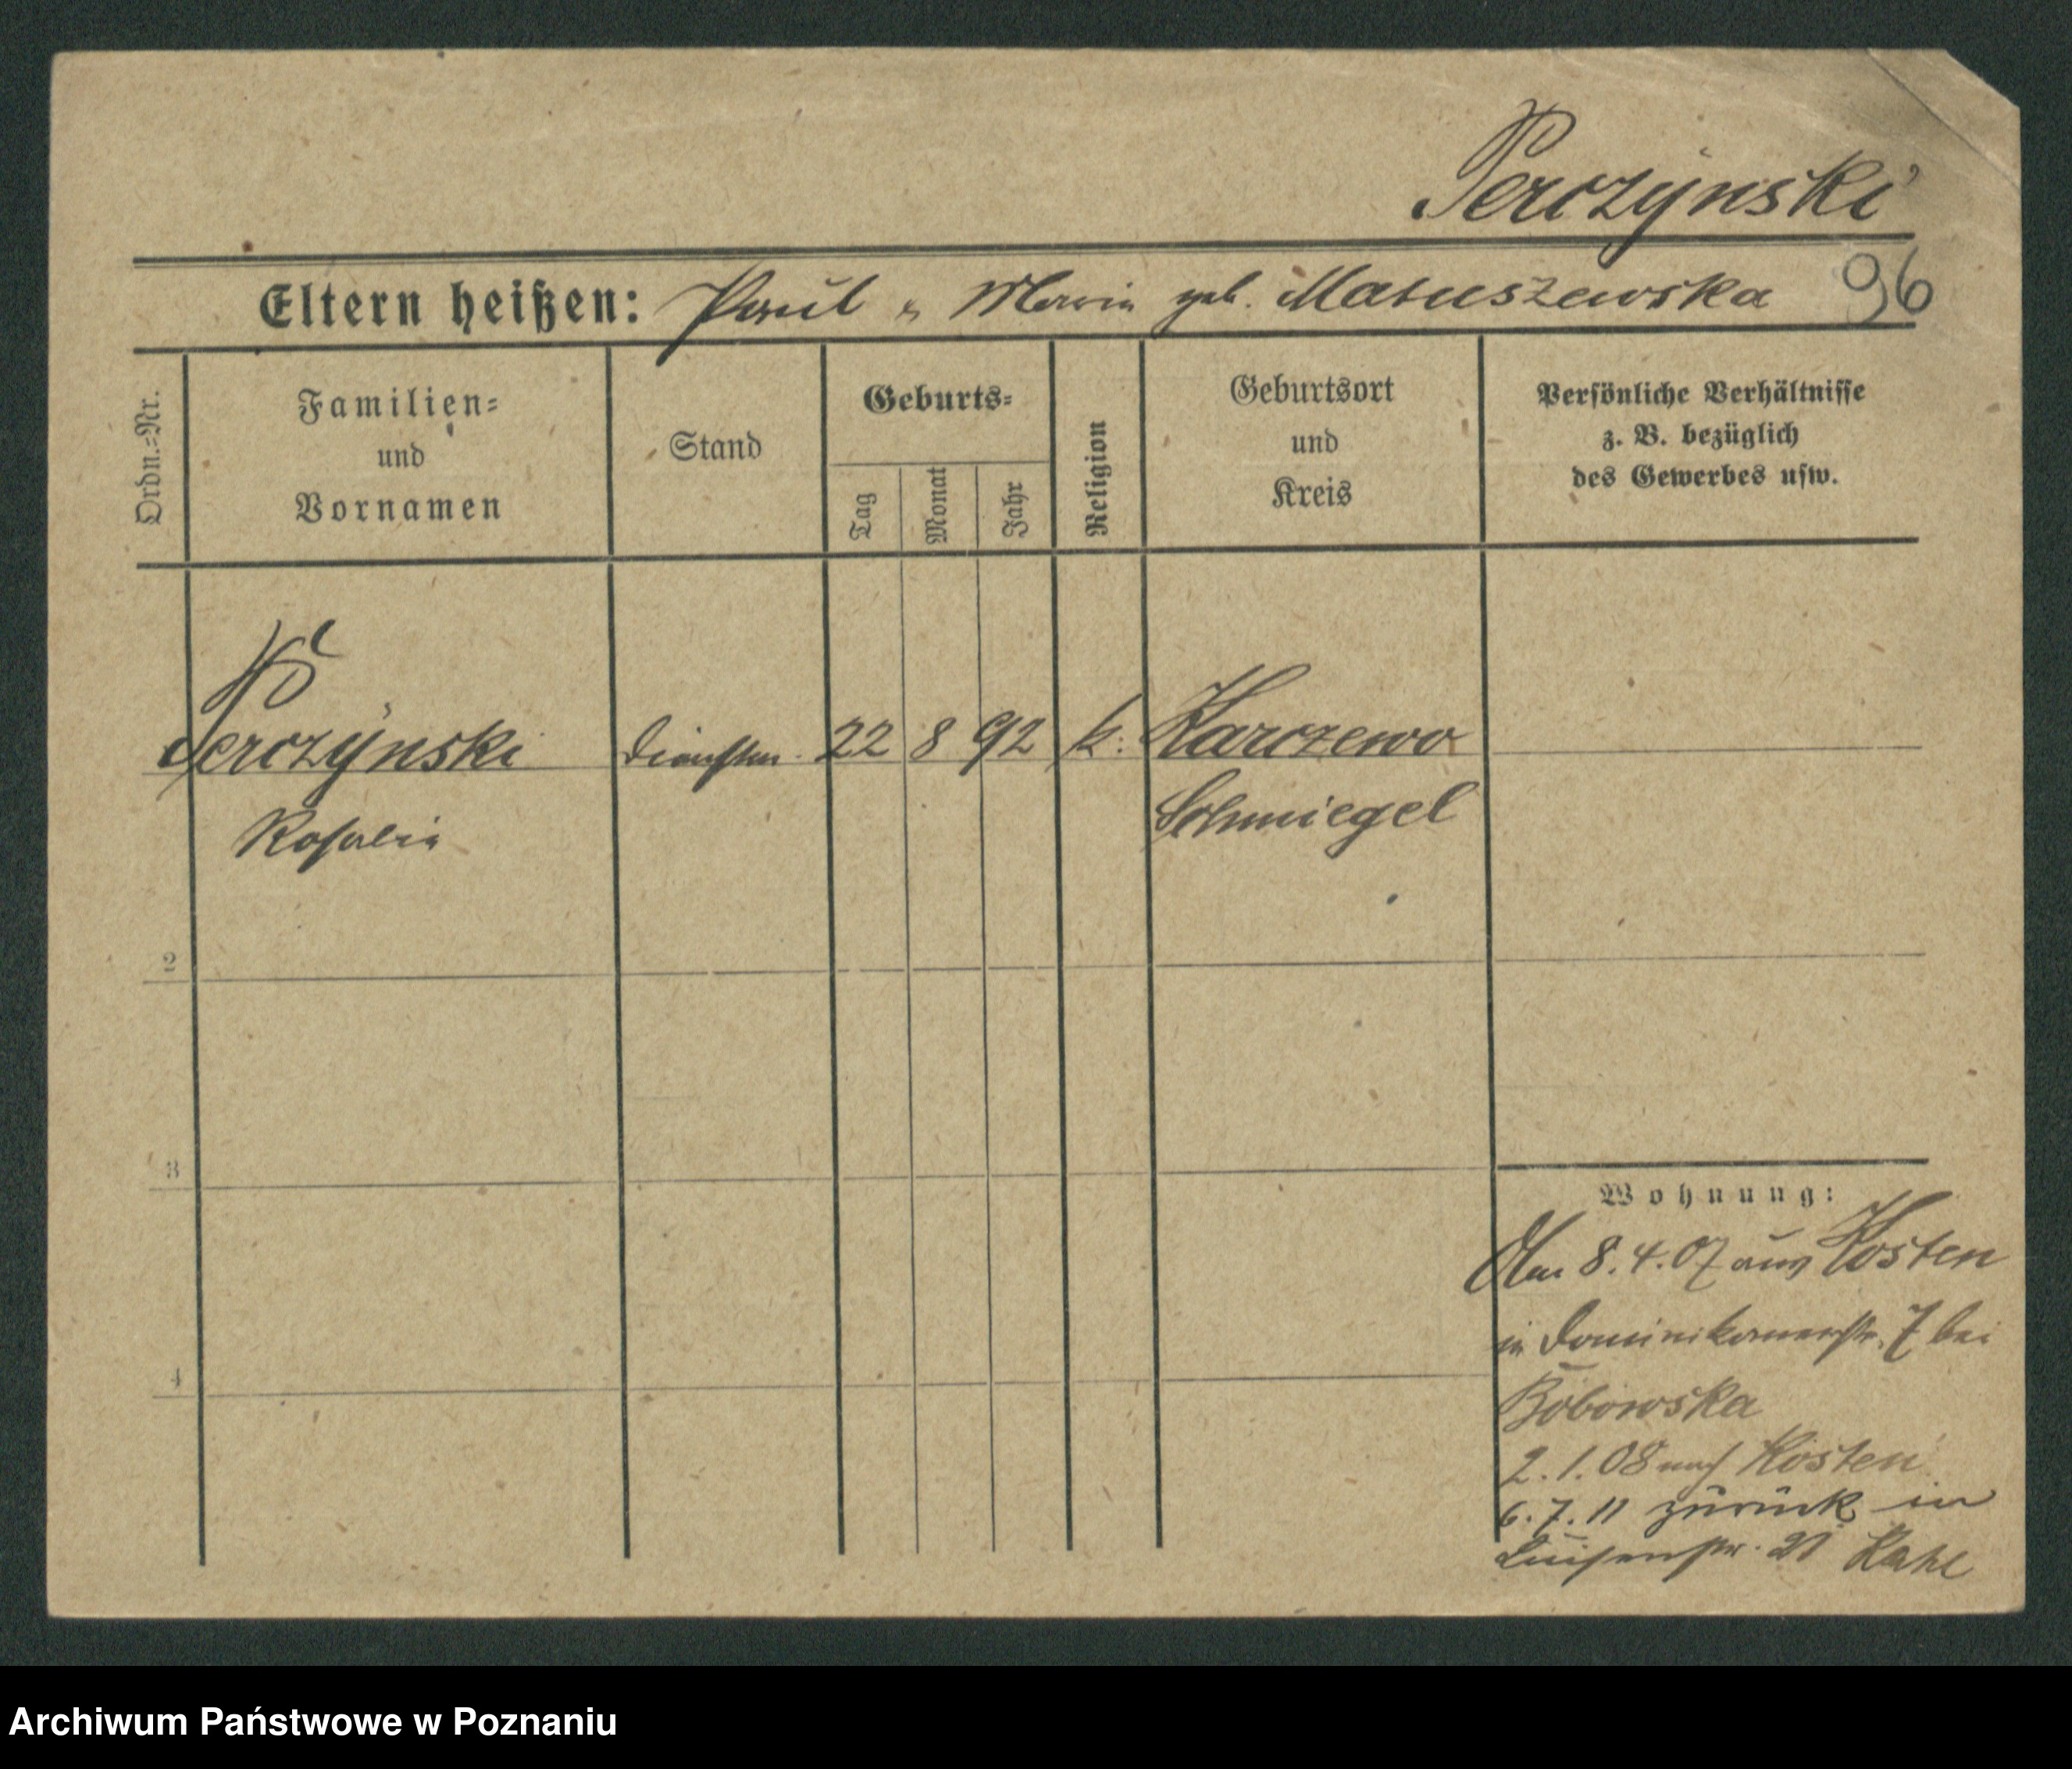 Perczyński
Eltern heißen: Paul u Maria geb. Matuszewska 96
Ordn.=Nr.
Familien=
und
Vornamen
Stand
Geburts=
Tag
Monat
Jahr
Religion
Geburtsort
und
Kreis
Persönliche Verhältnisse
z. B. bezüglich
des Gewerbes usw.
Perczyński 22 8 92 k. Karczewo
Rosalia Schmiegel
2
3
4
Wohnung:
Am 8.4.07 aus Kosten
in Dominikanerstr. 7 bei
Bobowska
2.1.08 nach Kosten
6.7.11 zurück in
Luisenstr. 21 Kahl
Archiwum Państwowe w Poznaniu